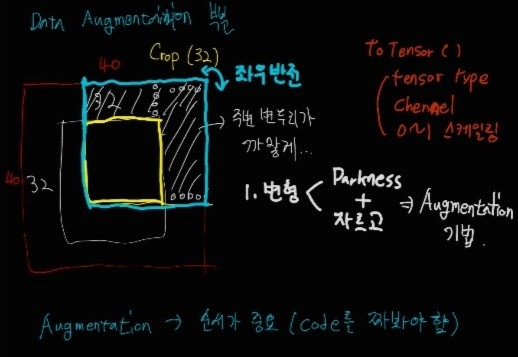 Data Augmentation 부분
40
Crop (32)
좌우반전
32
0000
주변 번두리가
까맣게...
40
32
0000
To Tensor ( )
tensor type
Chennel
0~1 스케일링
1. 변형
Darkness
+
자르고
⇒ Augmentation
기법
Augmentation → 순서가 중요 (code를 짜봐야 함)